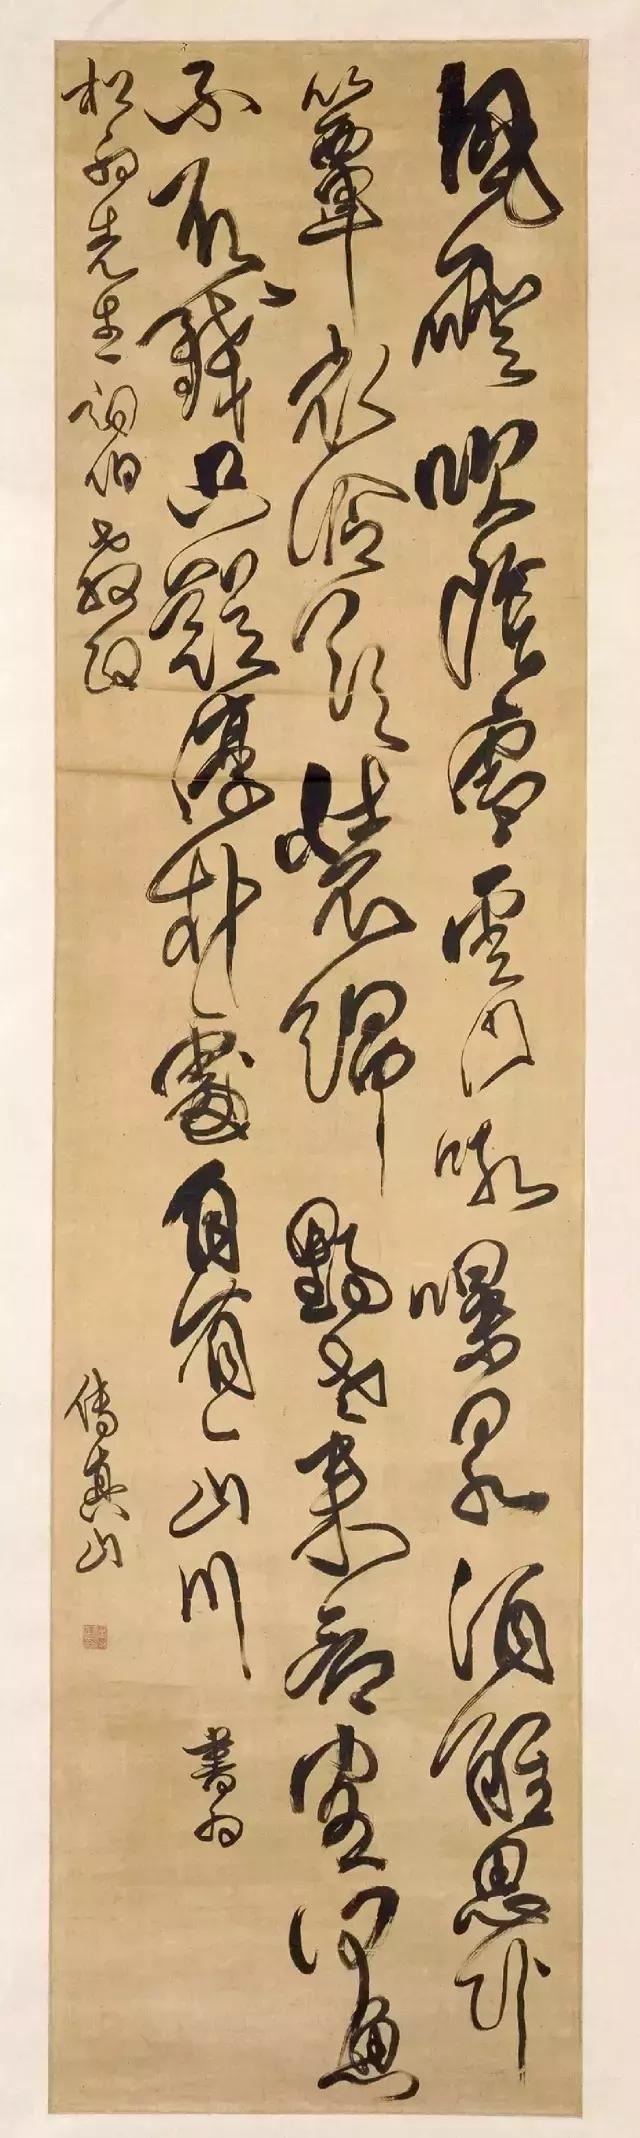 風磴吹陰雪雲門吼瀑泉酒醒思臥
簟衣冷欲裝綿野老來看客河魚
不取錢只疑淳朴處自有一山川 書為
松先生詞伯教政 傅真山